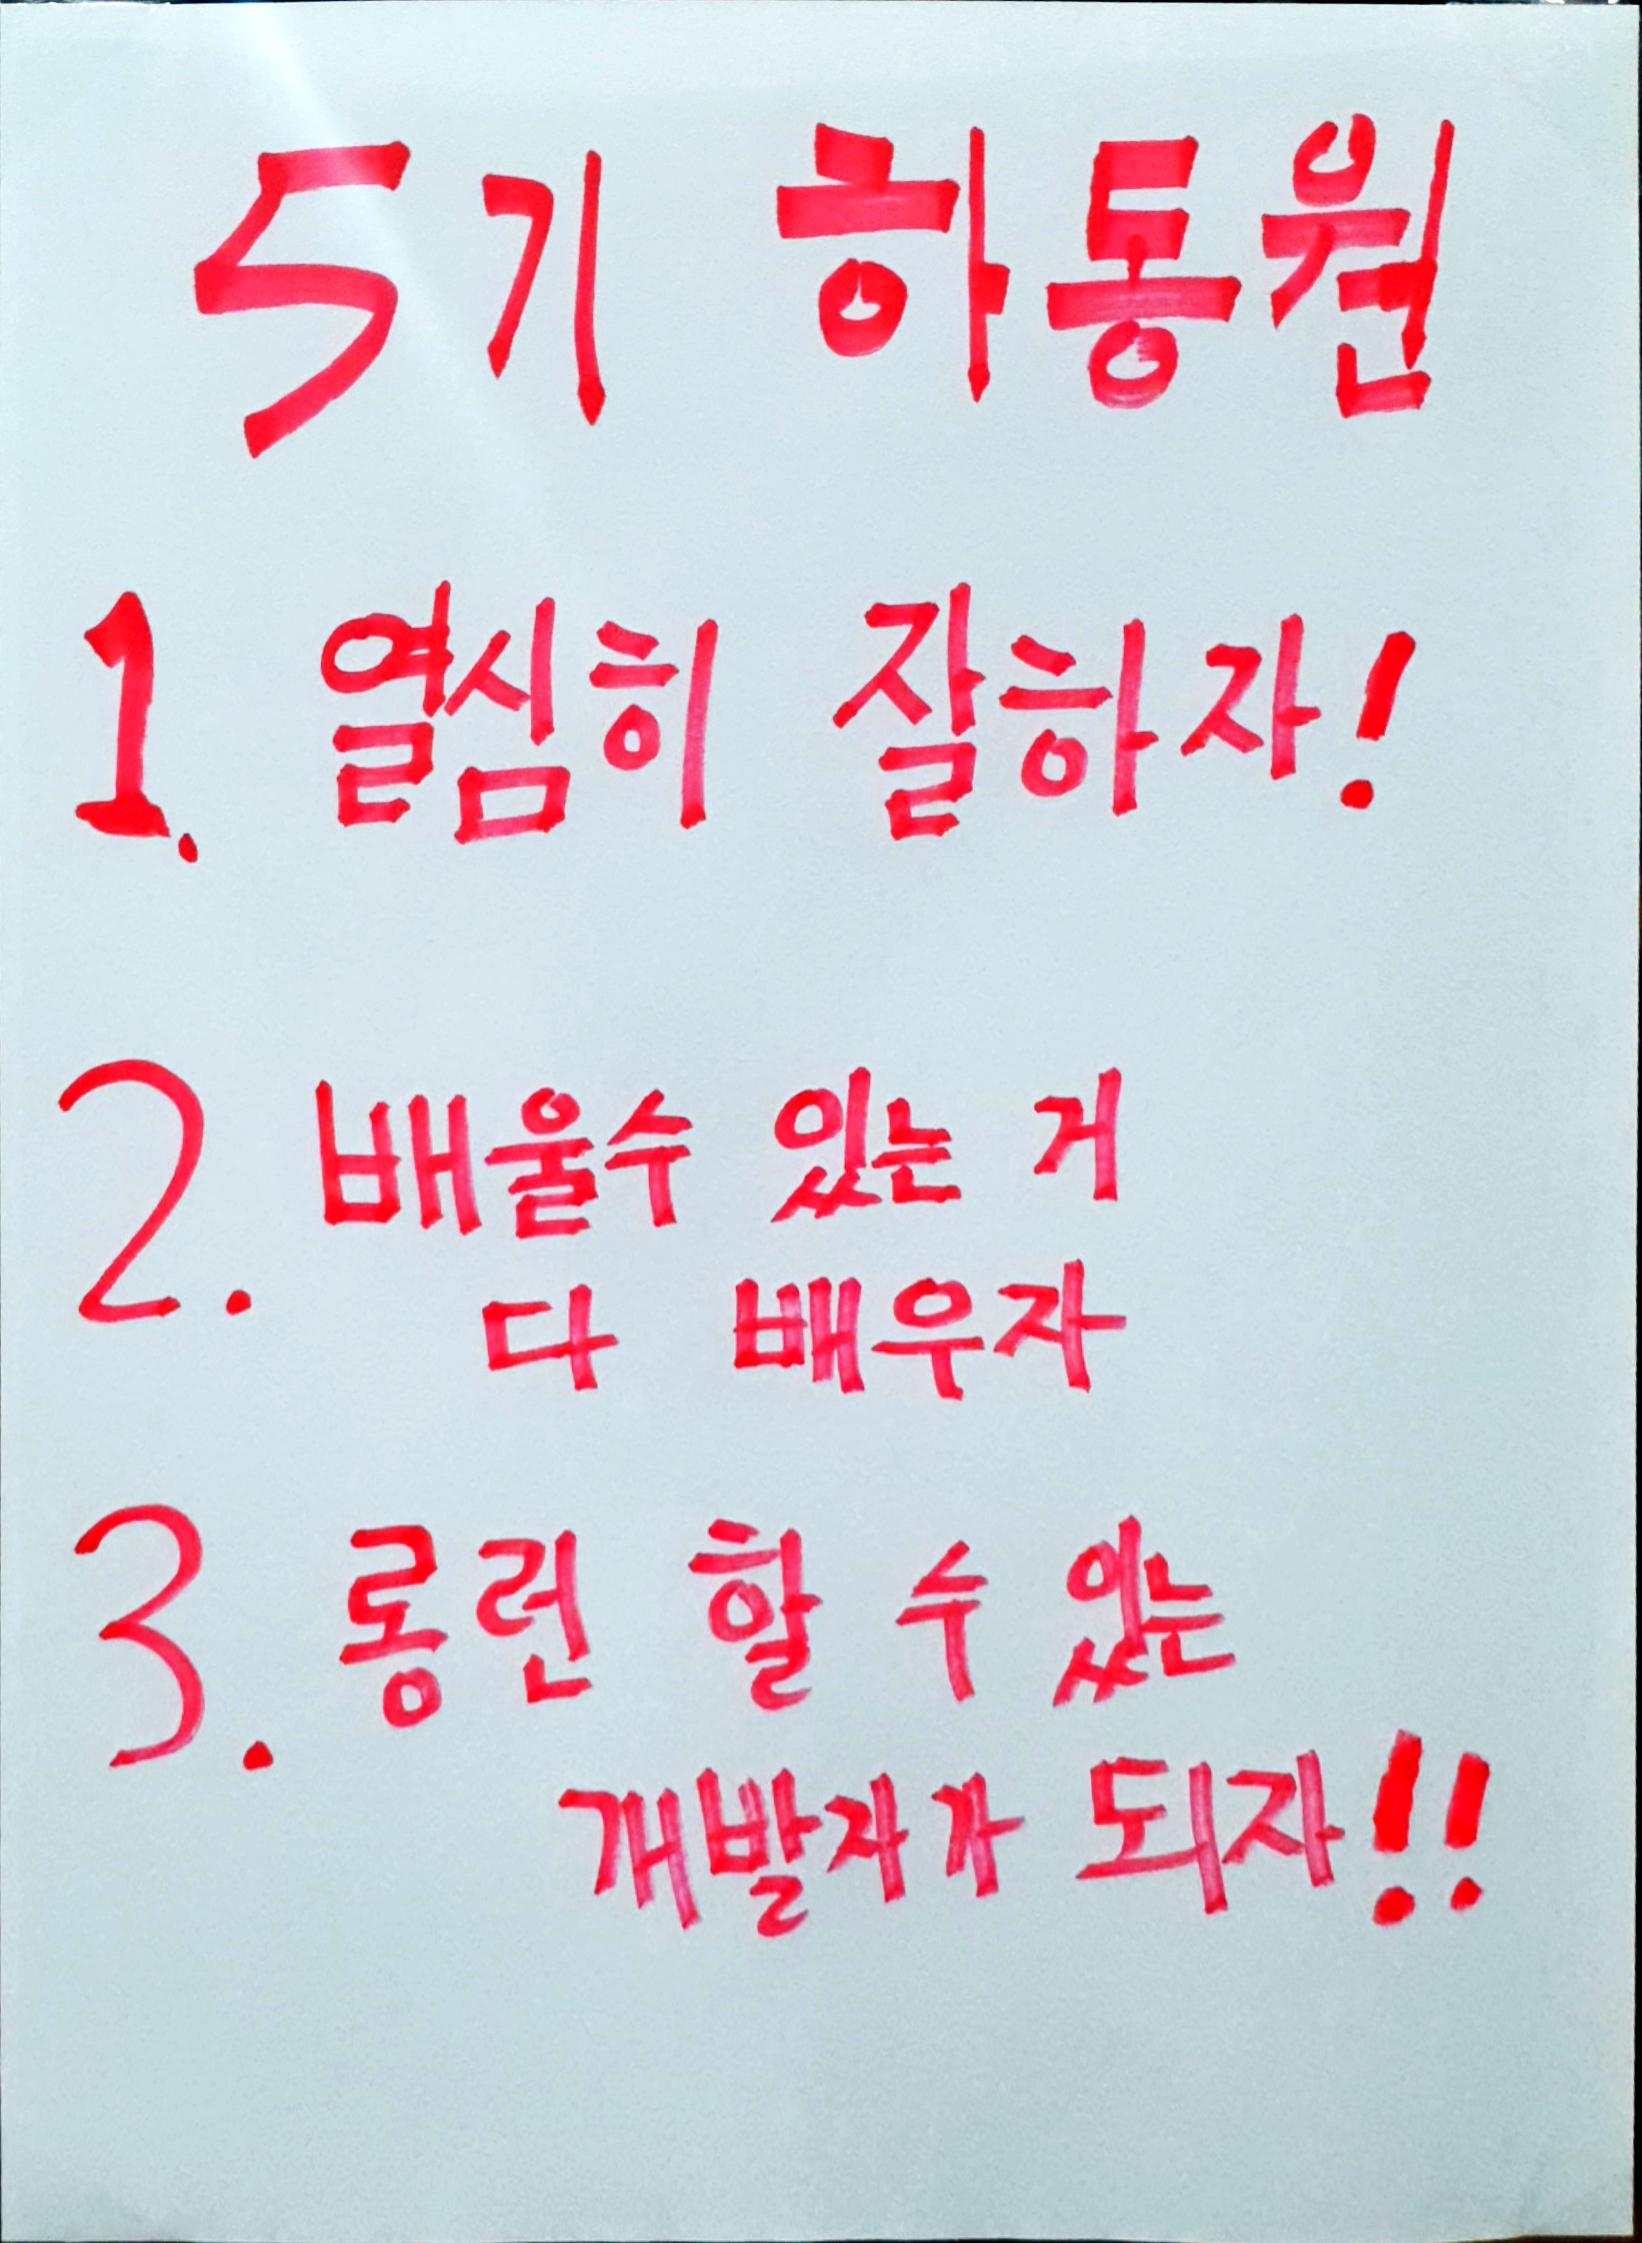 5기 하동원
1. 열심히 잘하자!
2. 배울수 있는 거
다 배우자
3. 롱런 할 수 있는
개발자가 되자!!